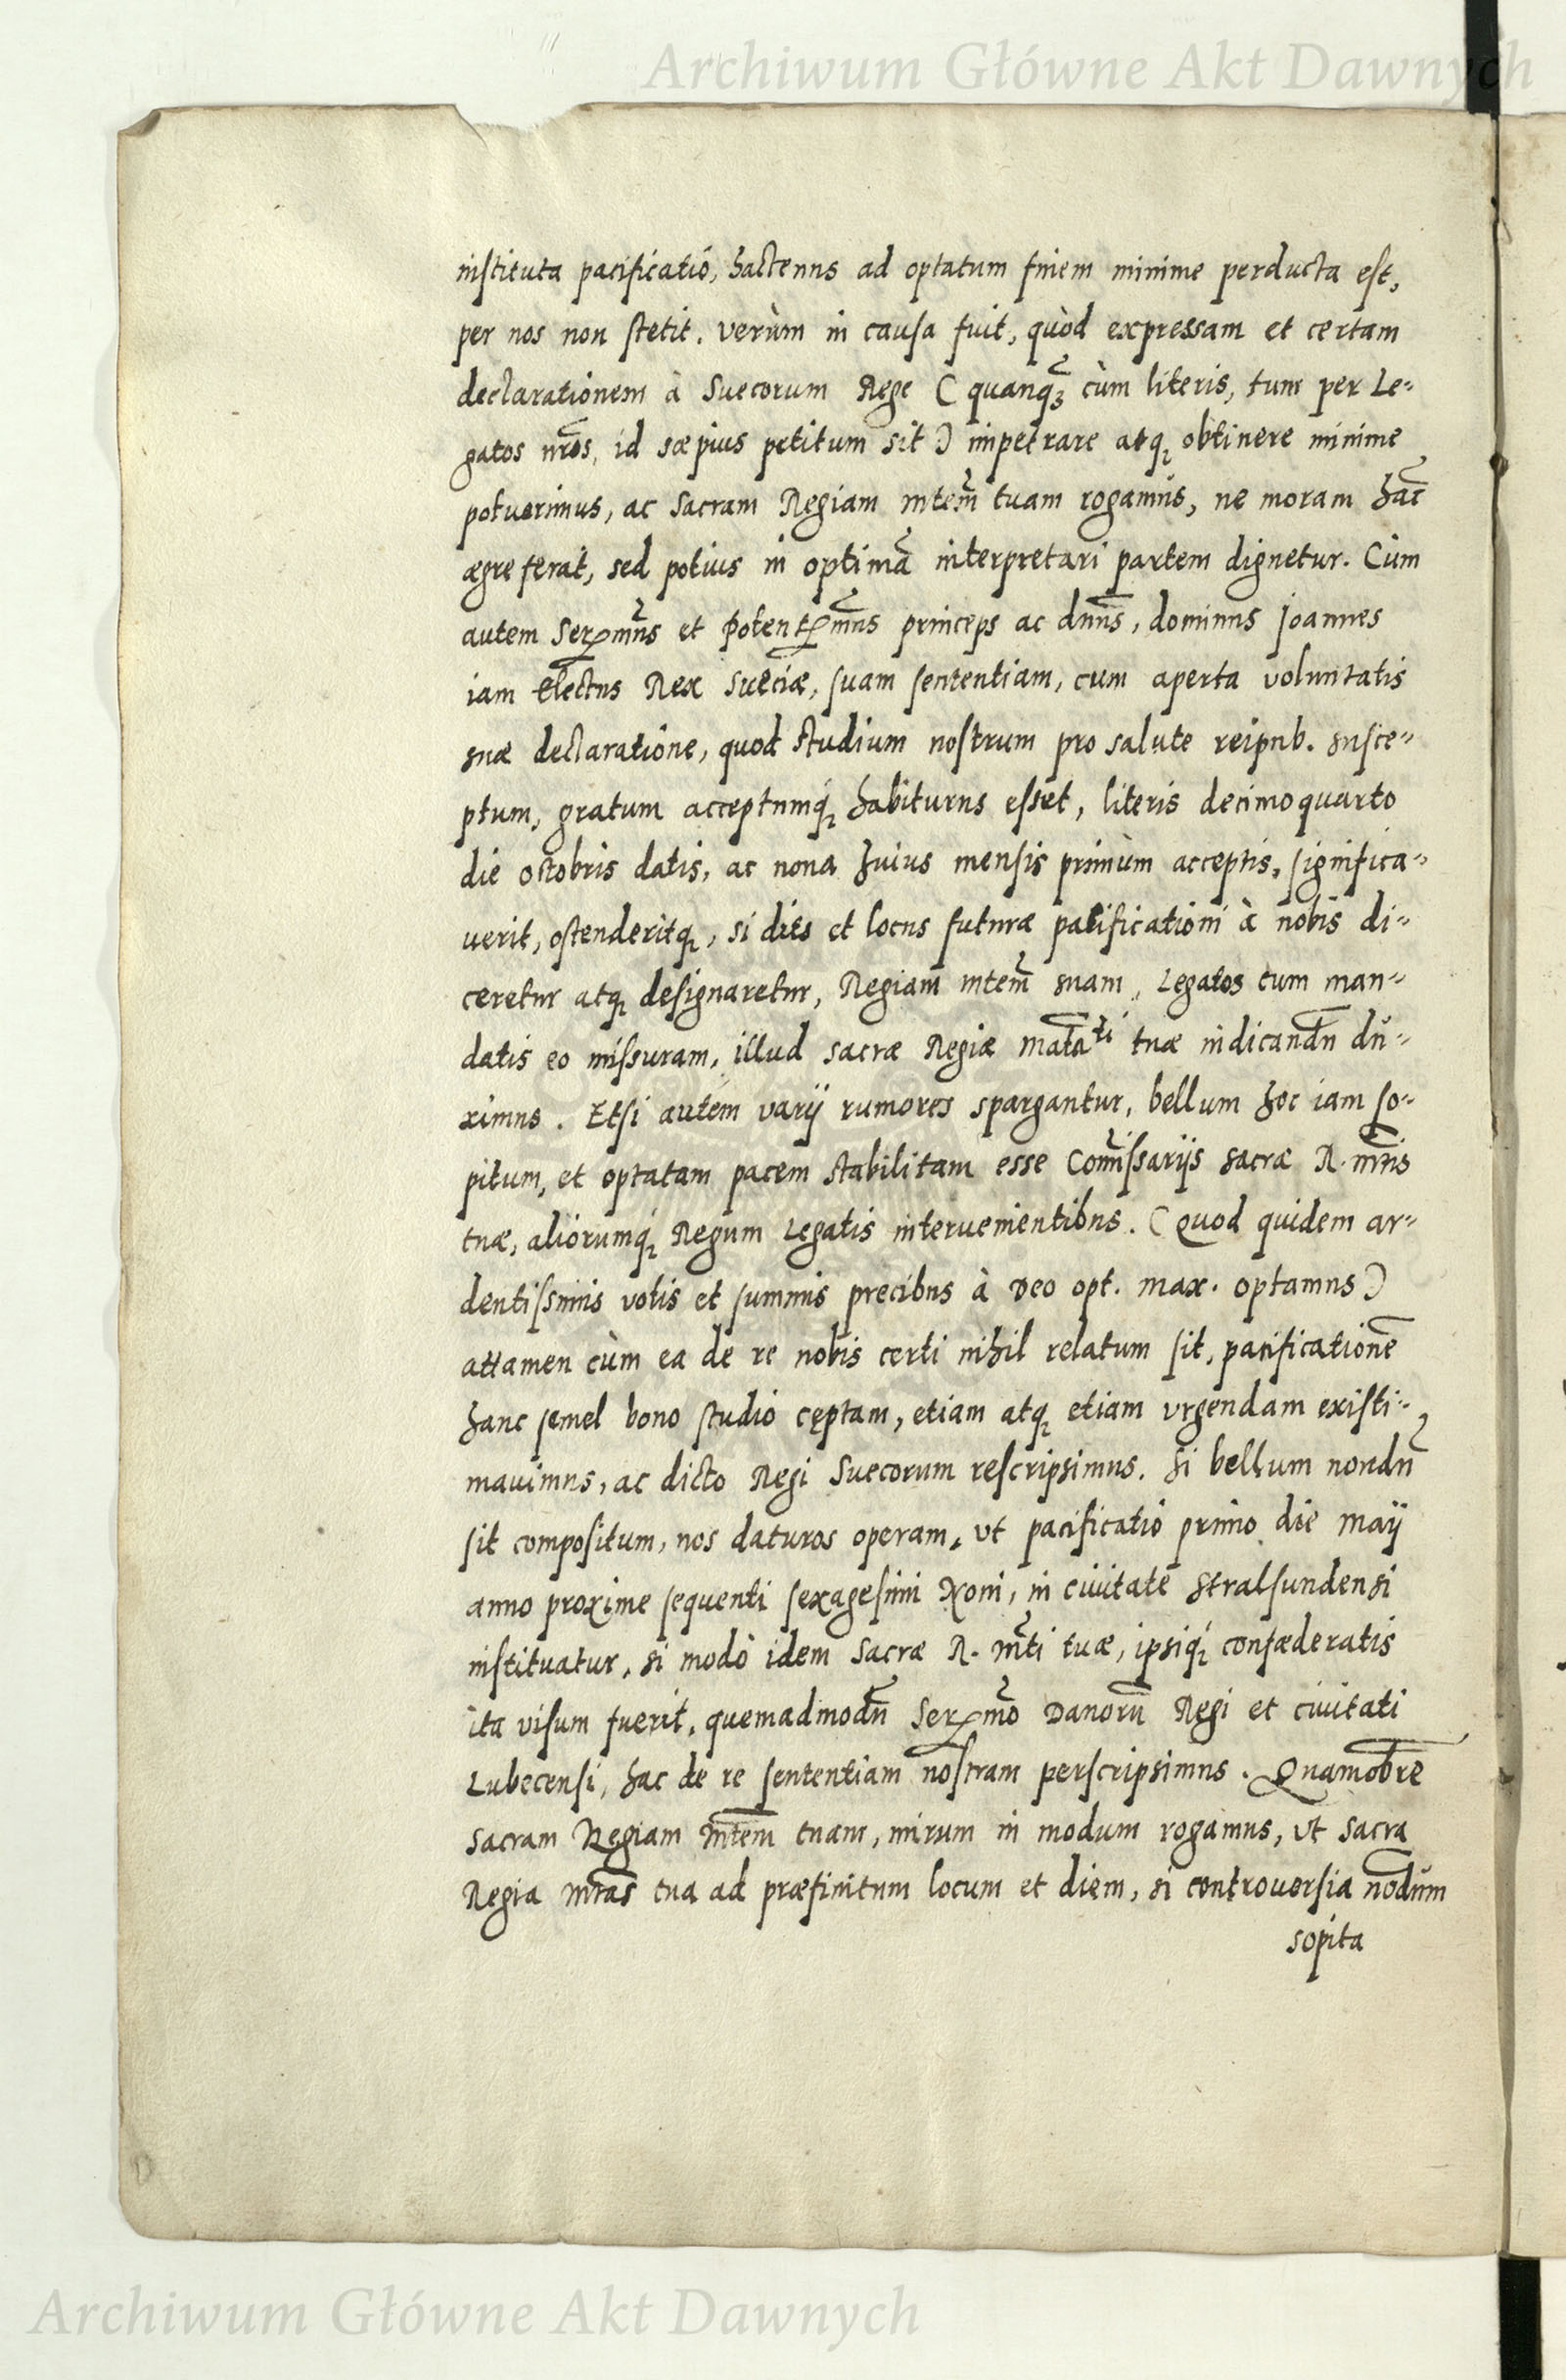 Archiwum Główne Akt Dawnych
instituta pacificatió, hactenus ad optatum finem minime perducta est,
per nos non stetit. verùm in causa fuit, quòd expressam et certam
declarationem à Suecorum Rege ( quanq̃ʒ cùm literis, tum per Le-
gatos nr̃os, id sæpius petitum sit ) impetrare atq; obtinere minime
potuerimus, ac Sacram Regiam mtem̃ tuam rogamus, ne moram hãc
ægre ferat, sed potius in optimã interpretari partem dignetur. Cùm
autem Serꝰmũs et Potentꝰmũs princeps ac dñns, dominus Joannes
iam electus Rex Sueciæ, suam sententiam, cum aperta voluntatis
suæ declaratione, quod studium nostrum pro salute reipub. susce-
ptum, gratum acceptumq́; habiturus esset, literis decimoquarto
die octobris datis, ac nona huius mensis primùm acceptis, significa-
uerit, ostenderitq;, si dies et locus futuræ pacificationi à nobis di-
ceretur atq; designaretur, Regiam mtem̃ suam, Legatos cum man-
datis eo missuram, illud sacræ Regiæ Matãti tuæ indicandũ du-
ximus. Etsi autem varij rumores spargantur, bellum hoc iam so-
pitum, et optatam pacem stabilitam esse Com̃issarijs sacræ R. mt̃is
tuæ, aliorumq́; Regum Legatis interuenientibus. ( Quod quidem ar-
dentissimis votis et summis precibus à Deo opt. max. optamus )
attamen cùm ea de re nobis certi nihil relatum sit, pacificationẽ
hanc semel bono studio cęptam, etiam atq; etiam vrgendam existi-
mauimus, ac dicto Regi Suecorum rescripsimus. Si bellum nondũ
sit compositum, nos daturos operam, vt pacificatio primo die Maij
anno proxime sequenti sexagesimi Noni, in ciuitate Stralsundensi
instituatur, si modò idem Sacræ R. mt̃i tuæ, ipsiq́; confæderatis
ita visum fuerit, quemadmodũ Serꝰmõ Danorũ Regi et ciuitati
Lubecensi, hac de re sententiam nostram perscripsimus. Quamobrẽ
sacram Regiam mtẽm tuam, mirum in modum rogamus, vt sacra
Regia mt̃as tua ad præfinitum locum et diem, si controuersia nõdum
sopita
Archiwum Główne Akt Dawnych